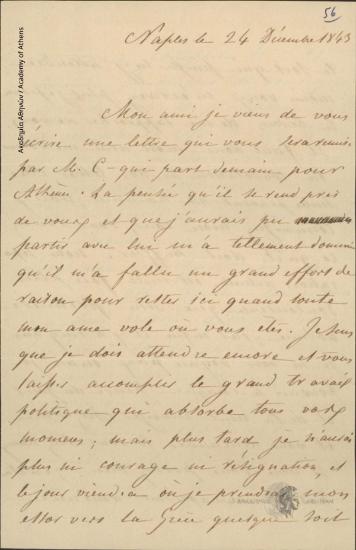 56
Naples le 24 Décembre 1843
Mon ami je viens de vous
écrire une lettre qui vous sera remise
par M. C- qui part demain pour
Athènes. La pensée qu'il se rend près
de vous et que j'aurais pu
partir avec lui m'a tellement dominé
qu'il m'a fallu un grand effort de
raison pour rester ici quand toute
mon ame vole où vous etes. Je sens
que je dois attendre encore et vous
laisser accomplir le grand travail
politique qui absorbe tous vos
momens; mais plus tard je n'aurai
plus ni courage ni résignation, et
le jour viendra où je prendrai mon
essor vers la Grèce quelque soit
Ακαδημία Αθηνών / Academy of Athens